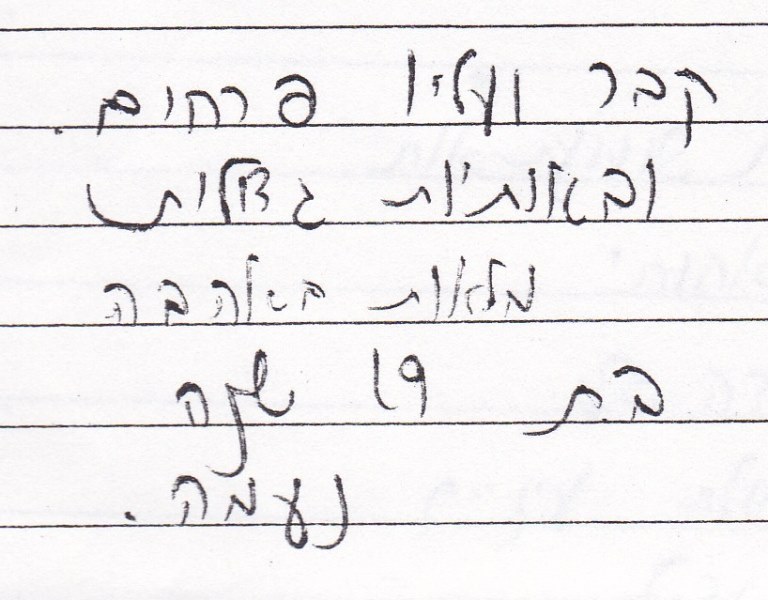 קבר ועליו פרחים.
ובאותיות גדולות
מלאות באהבה
בת 19 שנה
נעמה.